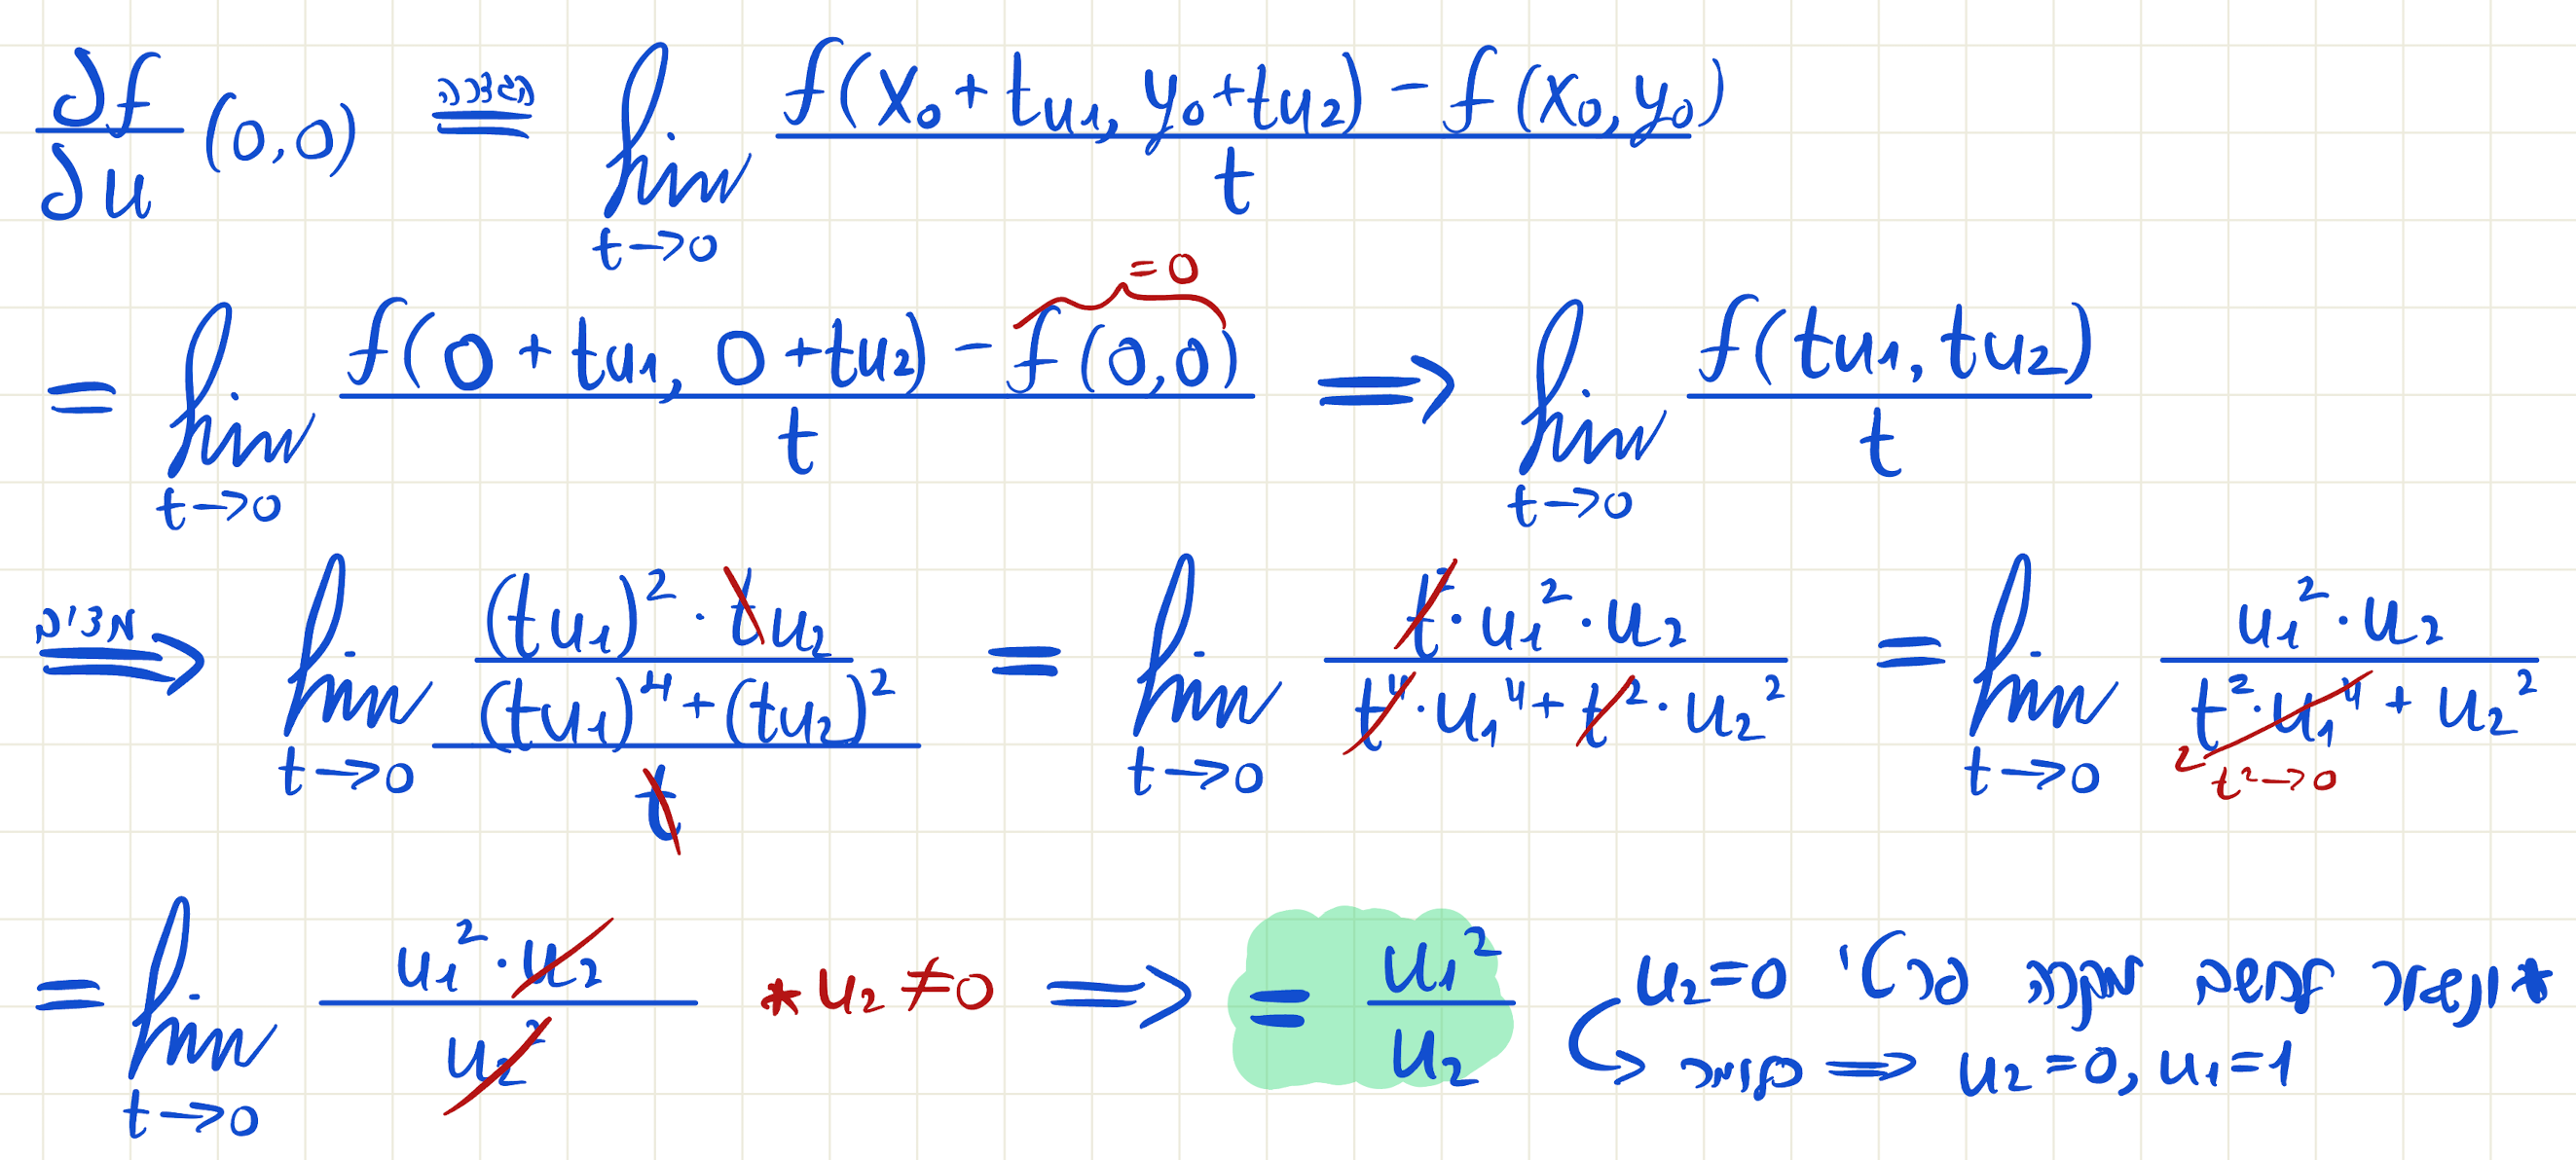 ∂f/∂u (0,0) הגדרה = lim t→0 (f(x₀+tu₁, y₀+tu₂) - f(x₀,y₀))/t
= lim t→0 (f(0+tu₁, 0+tu₂) - f(0,0))/t =0 ⟹ lim t→0 f(tu₁, tu₂)/t
נציב ⟹ lim t→0 (((tu₁)² · tu₂)/((tu₁)⁴+(tu₂)²))/t = lim t→0 (t² · u₁² · u₂)/(t⁴ · u₁⁴ + t² · u₂²) = lim t→0 (u₁² · u₂)/(t² · u₁⁴ + u₂²) t²→0
= lim t→0 (u₁² · u₂)/(u₂²) * u₂ ≠ 0 ⟹ = u₁²/u₂ * נשאר לחשב מקרה פרטי u₂=0
כלומר ⟹ u₂=0, u₁=1